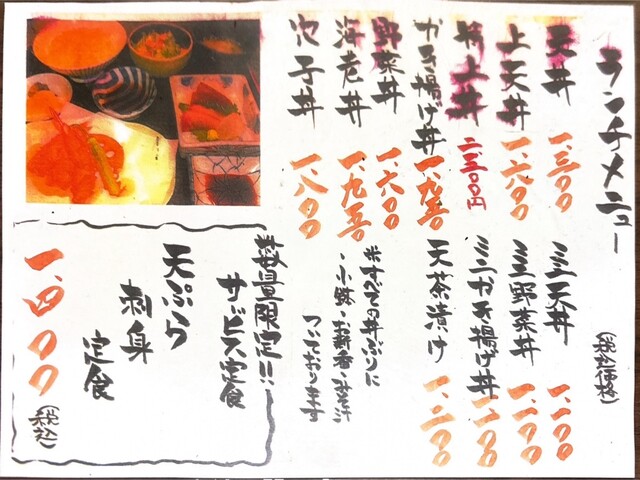 ランチメニュー
(税込価格)
天丼 一、三〇〇
上天丼 一、六〇〇
特上丼 二、三〇〇円
かき揚げ丼 一、九五〇
野菜丼 一、六〇〇
海老丼 一、九五〇
穴子丼 一、八〇〇
ミニ天丼 一、一〇〇
ミニ野菜丼 一、一〇〇
ミニかき揚げ丼 一、一〇〇
天茶漬け 一、二〇〇
※すべての丼ぶりに
・小鉢・お新香・お味汁
ついております
数量限定!!
サービス定食
天ぷら
刺身
定食
一、四〇〇
(税込)